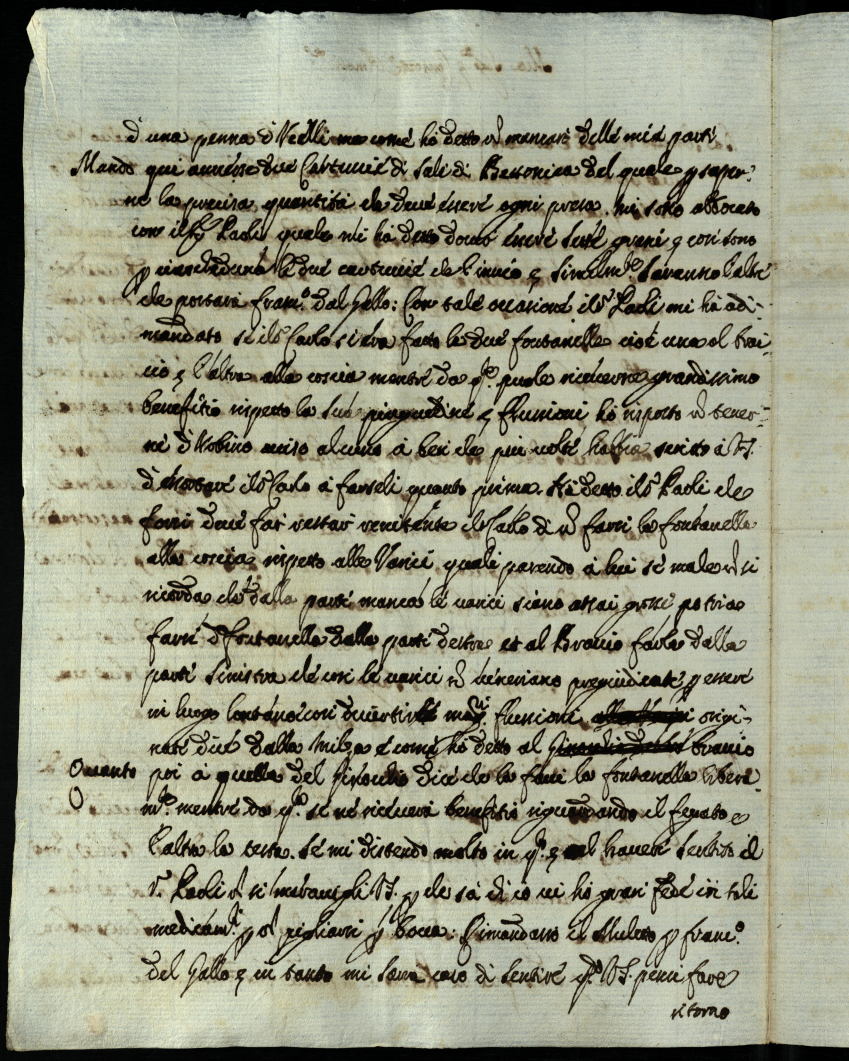 d una penna d Velli ma come hò detto ñ mancarò delle mie parti
Mando qui annesse due Cartuccie di Sale di Bettonica del quale p saper-
ne la precisa quantità che deve essere ogni presa mi sono abbocato
con il Sr Paoli quale mi hà detto dover essere sette grani e così sono
p ciascheduna le due cartuccie che l'invio e similmte saranno l'altre
che portarà Franco dal Gallo: Con tale occasione il Sr Paoli mi hà adi-
mandato se il Sr Carlo si era fatto le due fontanelle cioè una al brac-
cio e l'altra alla coscia mentre da qte puole ricevere grandissimo
benefitio rispetto la sua pinguedine e flussioni hò risposto ñ tener-
ne d Urbino aviso alcuno à ben che più volte habbia scritto à VS.
d'esortare il Sr Carlo à farseli quanto prima. Hà detto il Sr Paoli che
forsi deve far restar renitente il Sr Carlo di ñ farsi la fontanella
alla coscia rispetto alle Varici quali parendo à lui se male ñ si
ricorda che dalla parte manca le varici siano assai grosse potria
farsi d fontanella dalla parte destra et al Braccio farla dalla
parte sinistra che così le varici ñ veneriano pregiudicate p essere
in luogo lontano così divertirle flussioni origi-
nate due dalla milza e come hò detto al braccio
Quanto poi à quella del Ginocchio dice che la facci la fontanella libera-
mte mentre da qta se ne riceverà benefitio riguardando il fegato e
l'altra la testa. Se mi distendo molto in qto e nel haverne sentito il
Sr Paoli ñ si meravigli VS. p che sà di ciò ci hò gran fede in tali
medicamti p ñ pigliarsi p bocca: Rimandarò il Muletto p Franco
del Gallo e in tanto mi sarà caro di sentire qto VS. pensi fare
ritorno